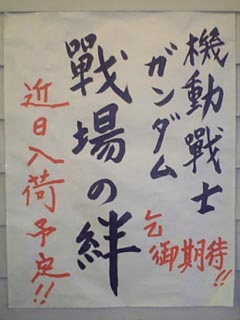 機動戰士
ガンダム
戰場の絆
近日入荷予定!!
乞御期待!!